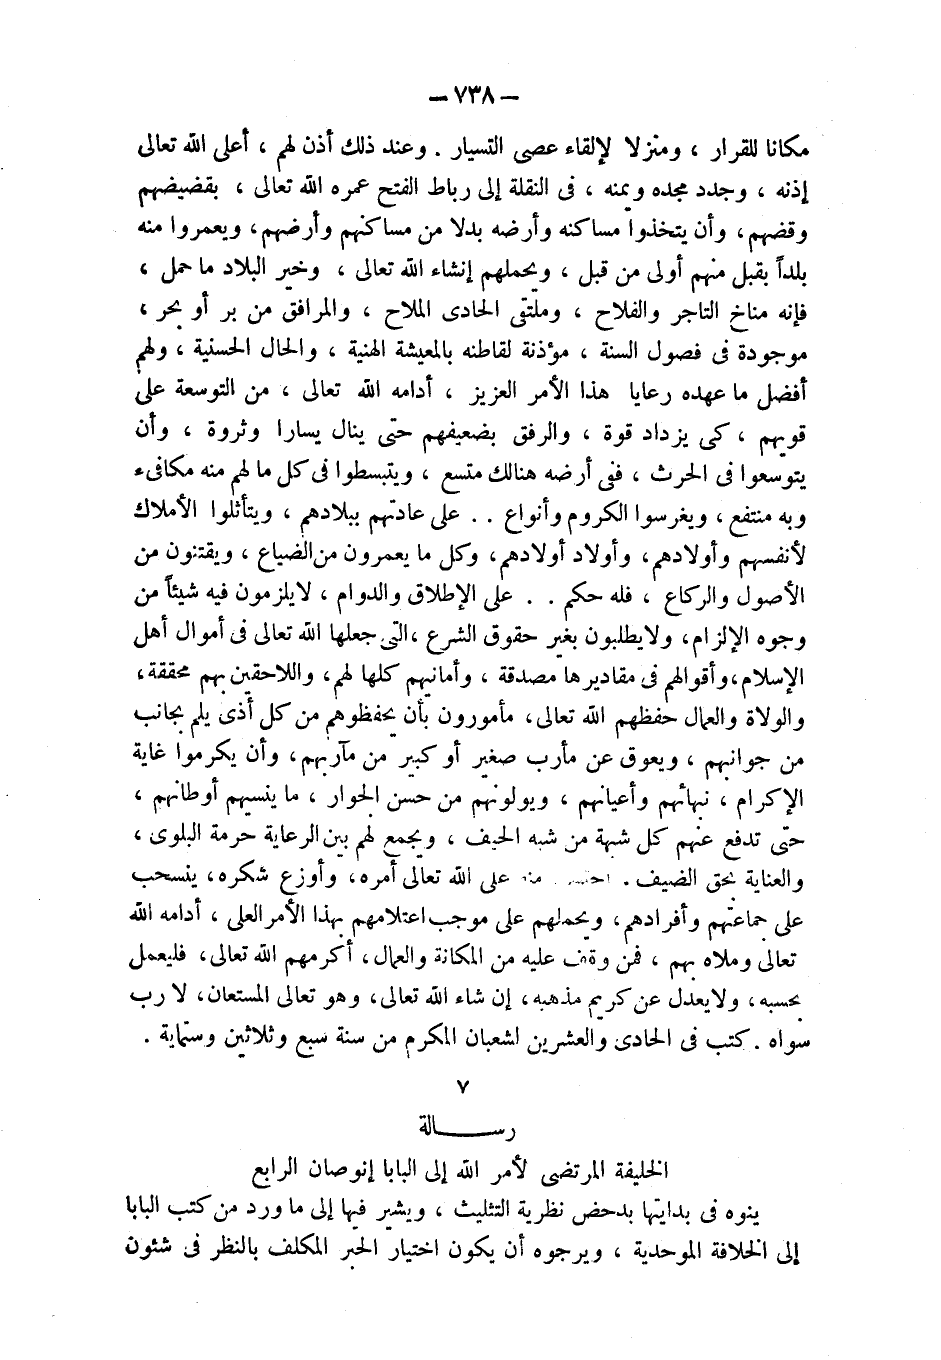 — ٧٣٨ —
مكانا للقرار ، ومنزلا لإلقاء عصى التسيار . وعند ذلك أذن لهم ، أعلى الله تعالى
إذنه ، وجدد مجده ويمنه ، فى النقلة إلى رباط الفتح عمره الله تعالى ، بقضيضهم
وقضهم، وأن يتخذوا مساكنه وأرضه بدلا من مساكنهم وأرضهم، ويعمروا منه
بلداً يقبل منهم أولى من قبل ، ويحملهم إنشاء الله تعالى ، وخير البلاد ما حمل ،
فإنه مناخ التاجر والفلاح ، وملتقى الحادى الملاح ، والمرافق من بر أو بحر ،
موجودة فى فصول السنة ، مؤذنة لقاطنه بالمعيشة الهنية ، والحال الحسنية ، ولهم
أفضل ما عهده رعايا هذا الأمر العزيز ، أدامه الله تعالى ، من التوسعة على
قويهم ، كى يزداد قوة ، والرفق بضعيفهم حتى ينال يسارا وثروة ، وأن
يتوسعوا فى الحرث ، ففى أرضه هنالك متسع ، ويتبسطوا فى كل ما لهم منه مكافىء
وبه منتفع، ويغرسوا الكروم وأنواع . . على عادتهم ببلادهم ، ويتأثلوا الأملاك
لأنفسهم وأولادهم، وأولاد أولادهم، وكل ما يعمرون من الضياع ، ويقتنون من
الأصول والركاع ، فله حكم . . على الإطلاق والدوام ، لايلزمون فيه شيئاً من
وجوه الإلزام، ولايطلبون بغير حقوق الشرع ،التى جعلها الله تعالى فى أموال أهل
الإسلام،وأقوالهم فى مقاديرها مصدقة ، وأمانيهم كلها لهم، واللاحقين بهم محققة،
والولاة والعمال حفظهم الله تعالى، مأمورون بأن يحفظوهم من كل أذى يلم بجانب
من جوانبهم ، ويعوق عن مأرب صغير أو كبير من مآربهم، وأن يكرموا غاية
الإكرام ، نبهائهم وأعيانهم ، ويولونهم من حسن الجوار ، ما ينسيهم أوطانهم ،
حتى تدفع عنهم كل شبهة من شبه الحيف ، ويجمع لهم بين الرعاية حرمة البلوى ،
والعناية بحق الضيف . على الله تعالى أمره، وأوزع شكره، ينسحب
على جماعتهم وأفرادهم، ويحملهم على موجب اعتلامهم بهذا الأمر العلى ، أدامه الله
تعالى وملاه بهم ، فمن وقف عليه من المكانة والعمال، أكرمهم الله تعالى، فليعمل
بحسبه، ولايعدل عن كريم مذهبه، إن شاء الله تعالى، وهو تعالى المستعان، لا رب
سواه . كتب فى الحادى والعشرين لشعبان المكرم من سنة سبع وثلاثين وستماية .
٧
رســــــالة
الخليفة المرتضى لأمر الله إلى البابا إنوصان الرابع
ينوه فى بدايتها بدحض نظرية التثليث ، ويشير فيها إلى ما ورد من كتب البابا
إلى الخلافة الموحدية ، ويرجوه أن يكون اختيار الحبر المكلف بالنظر فى شئون